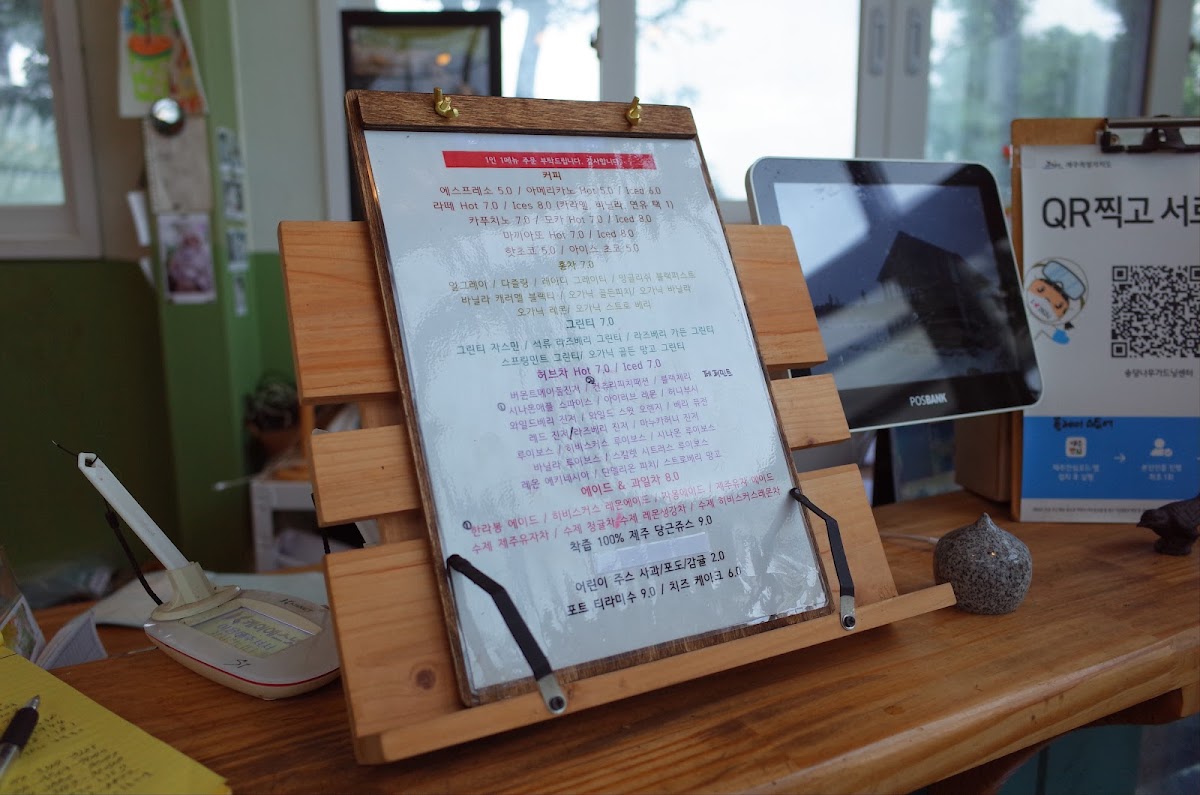 1인 1메뉴 주문 부탁드립니다. 감사합니다.
커피
에스프레소 5.0 / 아메리카노 Hot 5.0 / Iced 6.0
라떼 Hot 7.0 / Ices 8.0 (카라멜, 바닐라, 연유 택 1)
카푸치노 7.0 / 모카 Hot 7.0 / Iced 8.0
마끼아또 Hot 7.0 / Iced 8.0
핫초코 5.0 / 아이스 초코 5.0
홍차 7.0
얼그레이 / 다즐링 / 레이디 그레이티 / 잉글리쉬 블랙퍼스트
바닐라 캐러멜 블랙티 / 오가닉 골든피치/ 오가닉 바닐라
오가닉 레몬/ 오가닉 스트로 베리
그린티 7.0
그린티 자스민 / 석류 라즈베리 그린티 / 라즈베리 가든 그린티
스프링민트 그린티/ 오가닉 골든 망고 그린티
허브차 Hot 7.0 / Iced 7.0
/ 블랙체리 페퍼민트
① 시나몬애플 스파이스 / 아이리브 레몬 / 허니부시
와일드베리 진저 / 와일드 스윗 오렌지 / 베리 퓨전
레드 진저/라즈베리 진저 / 마누카허니 진저
루이보스 / 히비스커스 루이보스 / 시나몬 루이보스
바닐라 루이보스 / 스칼렛 시트러스 루이보스
레몬 에키네시아 / 단델리온 피치/ 스트로베리 망고
에이드 & 과일차 8.0
① 한라봉 에이드 / 히비스커스 레몬에이드 / 자몽에이드 / 제주유자 에이드
수제 제주유자차 / 수제 청귤차/수제 레몬생강차 / 수제 히비스커스레몬차
착즙 100% 제주 당근쥬스 9.0
어린이 주스 사과/포도/감귤 2.0
포트 티라미수 9.0 / 치즈 케이크 6.0
POSBANK
제주특별자치도
QR찍고 서
송당나무가드닝센터